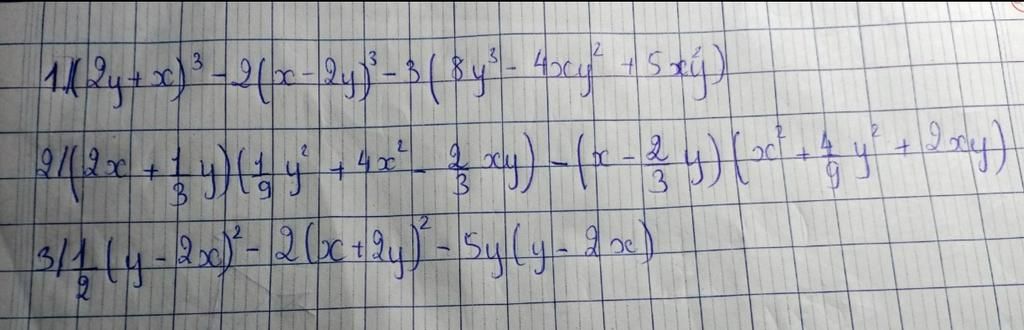 1/(2y+x)³-2(x-2y)³-3(8y³-4xy²+5x²y)
2/(2x+1/3 y)(1/9 y²+4x²-2/3 xy)-(x-2/3 y)(x²+4/9 y²+2xy)
3/1/2 (y-2x)²-2(x+2y)²-5y(y-2x)